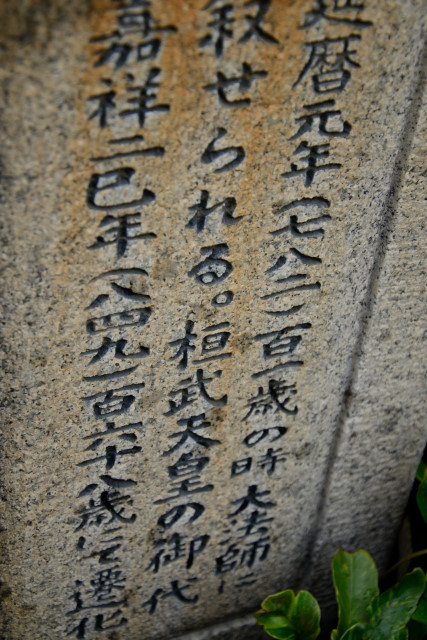 延暦元年(七八二)百一歳の時大法師に
叙せられる。桓武天皇の御代
嘉祥二巳年(八四九)百六十八歳にて遷化